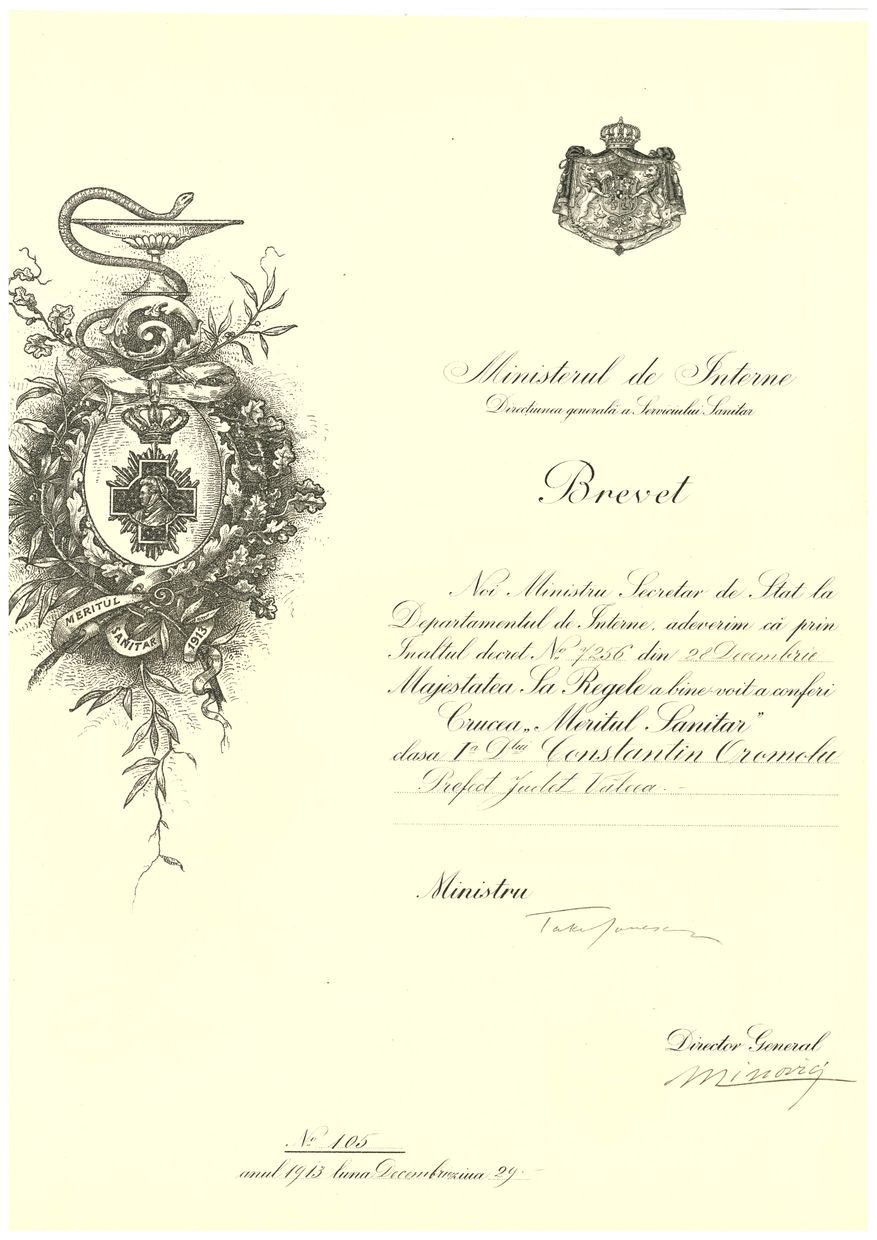 MERITUL
SANITAR
1913
Ministerul de Interne
Direcțiunea generală a Serviciului Sanitar
Brevet
Noi Ministru Secretar de Stat la
Departamentul de Interne, adeverim că prin
Inaltul decret No 7256 din 28 Decembrie
Majestatea Sa Regele a bine-voit a conferi
Crucea „Meritul Sanitar”
clasa Ia Dlui Constantin Oromolu
Prefect Judet Vâlcea.-
Ministru
Take Ionescu
Director General
Minovici
No 105
anul 1913 luna Decembrie ziua 29.-